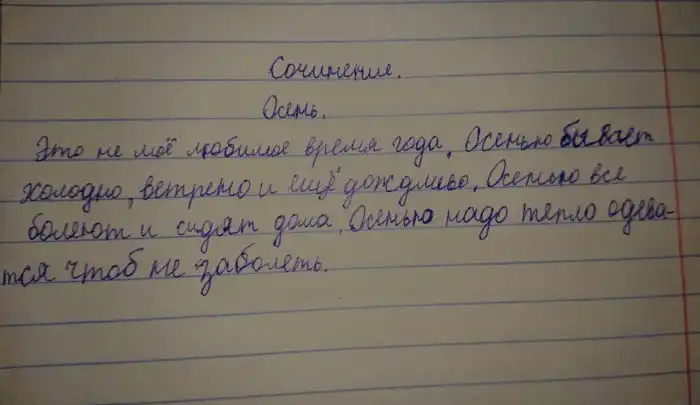 Сочинение.
Осень.
Это не моё любимое время года. Осенью бывает
холодно, ветрено и ещё дождливо. Осенью все
болеют и сидят дома. Осенью надо тепло одева-
тся чтоб не заболеть.